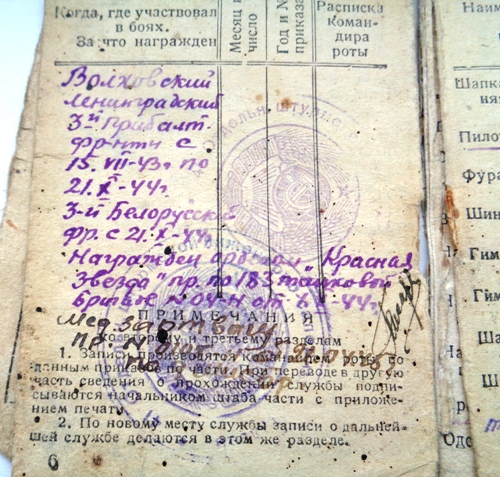 Когда, где участвовал
в боях.
За что награжден
Месяц и
число
Год и №
приказа
Расписка
коман-
дира
роты
Волховский
Ленинградский
3й Прибалт.
фронти с
15. VII-43г. по
21. X-44г.
3-й Белорусский
фр. с 21. X-44
Награжден орденом „Красная
Звезда" пр. по 183 танковой
бригаде №04-Н от
ПРИМЕЧАНИЯ
Мед. за отвагу
ко второму и третьему разделам
1. Записи производятся командиром роты со-
данным приказов по части. При переводе в другую
часть сведения о прохождении службы подпи-
сываются начальником штаба части с приложе-
нием печати.
2. По новому месту службы записи о дальней-
шей службе делаются в этом же разделе.
6
Наим
Шапка
Пило
Фура
Шин
Гим
Гим